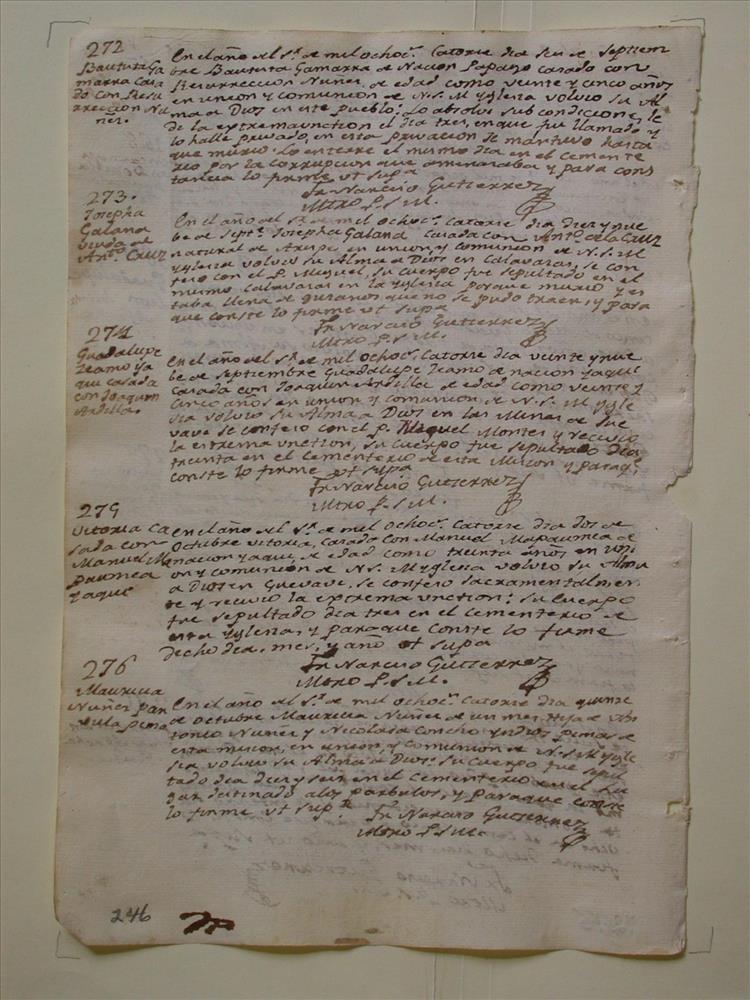 272
Bautista Ga
marra Casa
do con Resu
rreccion Nu
ñez.
En el año del S.r de mil ochoc.s Catorze dia seis de Septiem
bre Bautista Gamarra de Nacion Papago casado con
Resurreccion Nuñez, de edad como veinte y cinco años
en union y comunion de N. S. M Yglesia volvio su Al
ma a Dios en este pueblo: Lo absolvi sub condicione, le
di la extremaunction el dia tres, en que fui llamado y
lo halle privado, en esta privacion se mantuvo hasta
que murio. Lo enterre el mismo dia en el Cemente
rio por la corrupcion que amenazaba y para cons
tancia lo firme ut supa
Fr Narciso Gutierrez
Mtro P. S. M.
273.
Josepha
Galana
viuda de
Ant.o Cruz
En el año del S.r de mil ochoc.s Catorze dia diez y nue
be de Sept.e Josepha Galana Casada con Ant.o de la Cruz
natural de Arispe en union y comunion de N. S. M
Yglesia volvio su Alma a Dios en Calavazas, se con
feso con el P. Miguel, su cuerpo fue sepultado en el
mismo Calavazas en la Yglesia porque murio y es
taba llena de gusanos que no se pudo traer, y para
que conste lo firme ut supa
Fr Narciso Gutierrez
Mtro P. S. M.
274
Guadalupe
Teamo Ya
qui casada
con Joaquin
Ardilla.
En el año del S.r de mil ochoc.s Catorze dia veinte y nue
be de Septiembre Guadalupe Teamo de nacion Yaqui
Casada con Joaquin Ardilla de edad como veinte y
cinco años en union y comunion de N. S. M Ygle
sia volvio su Alma a Dios en las Minas de Gue
vavi se confeso con el P. Miguel Montes y recivio
la extrema unction, su cuerpo fue sepultado dia
treinta en el Cementerio de esta Mision y paraq.e
conste lo firme ut supa
Fr Narciso Gutierrez
Mtro P. S. M.
279
Vitoria Ca
sada con
Manuel Ma
paumea
Yaqui
En el año del S.r de mil ochoc.s Catorze dia dos de
Octubre Vitoria, Casada con Manuel Mapaumea de
nacion Yaqui, de edad como treinta años en uni
on y comunion de N. S. M Yglesia volvio su Alma
a Dios en Guevavi, se confeso Sacramentalmen
te y recivio la extrema unction: su cuerpo
fue sepultado dia tres en el Cementerio de
esta Yglesia, y paraque conste lo firme
dicho dia, mes, y año ut supa
Fr Narciso Gutierrez
Mtro P. S. M.
276
Mauricia
Nuñez par
vula pima
En el año del S.r de mil ochoc.s Catorze dia quinze
de octubre Mauricia Nuñez de un mes Hija de An
tonio Nuñez y Nicolasa Concho yndios Pimas de
esta mision, en union, y comunion de N. S. M Ygle
sia volvio su Alma a Dios: su cuerpo fue sepul
tado dia diez y seis en el Cementerio en el lu
gar destinado a los parbulos, y paraque conste
lo firme ut sup.a
Fr Narciso Gutierrez
Mtro P. S. M.
246